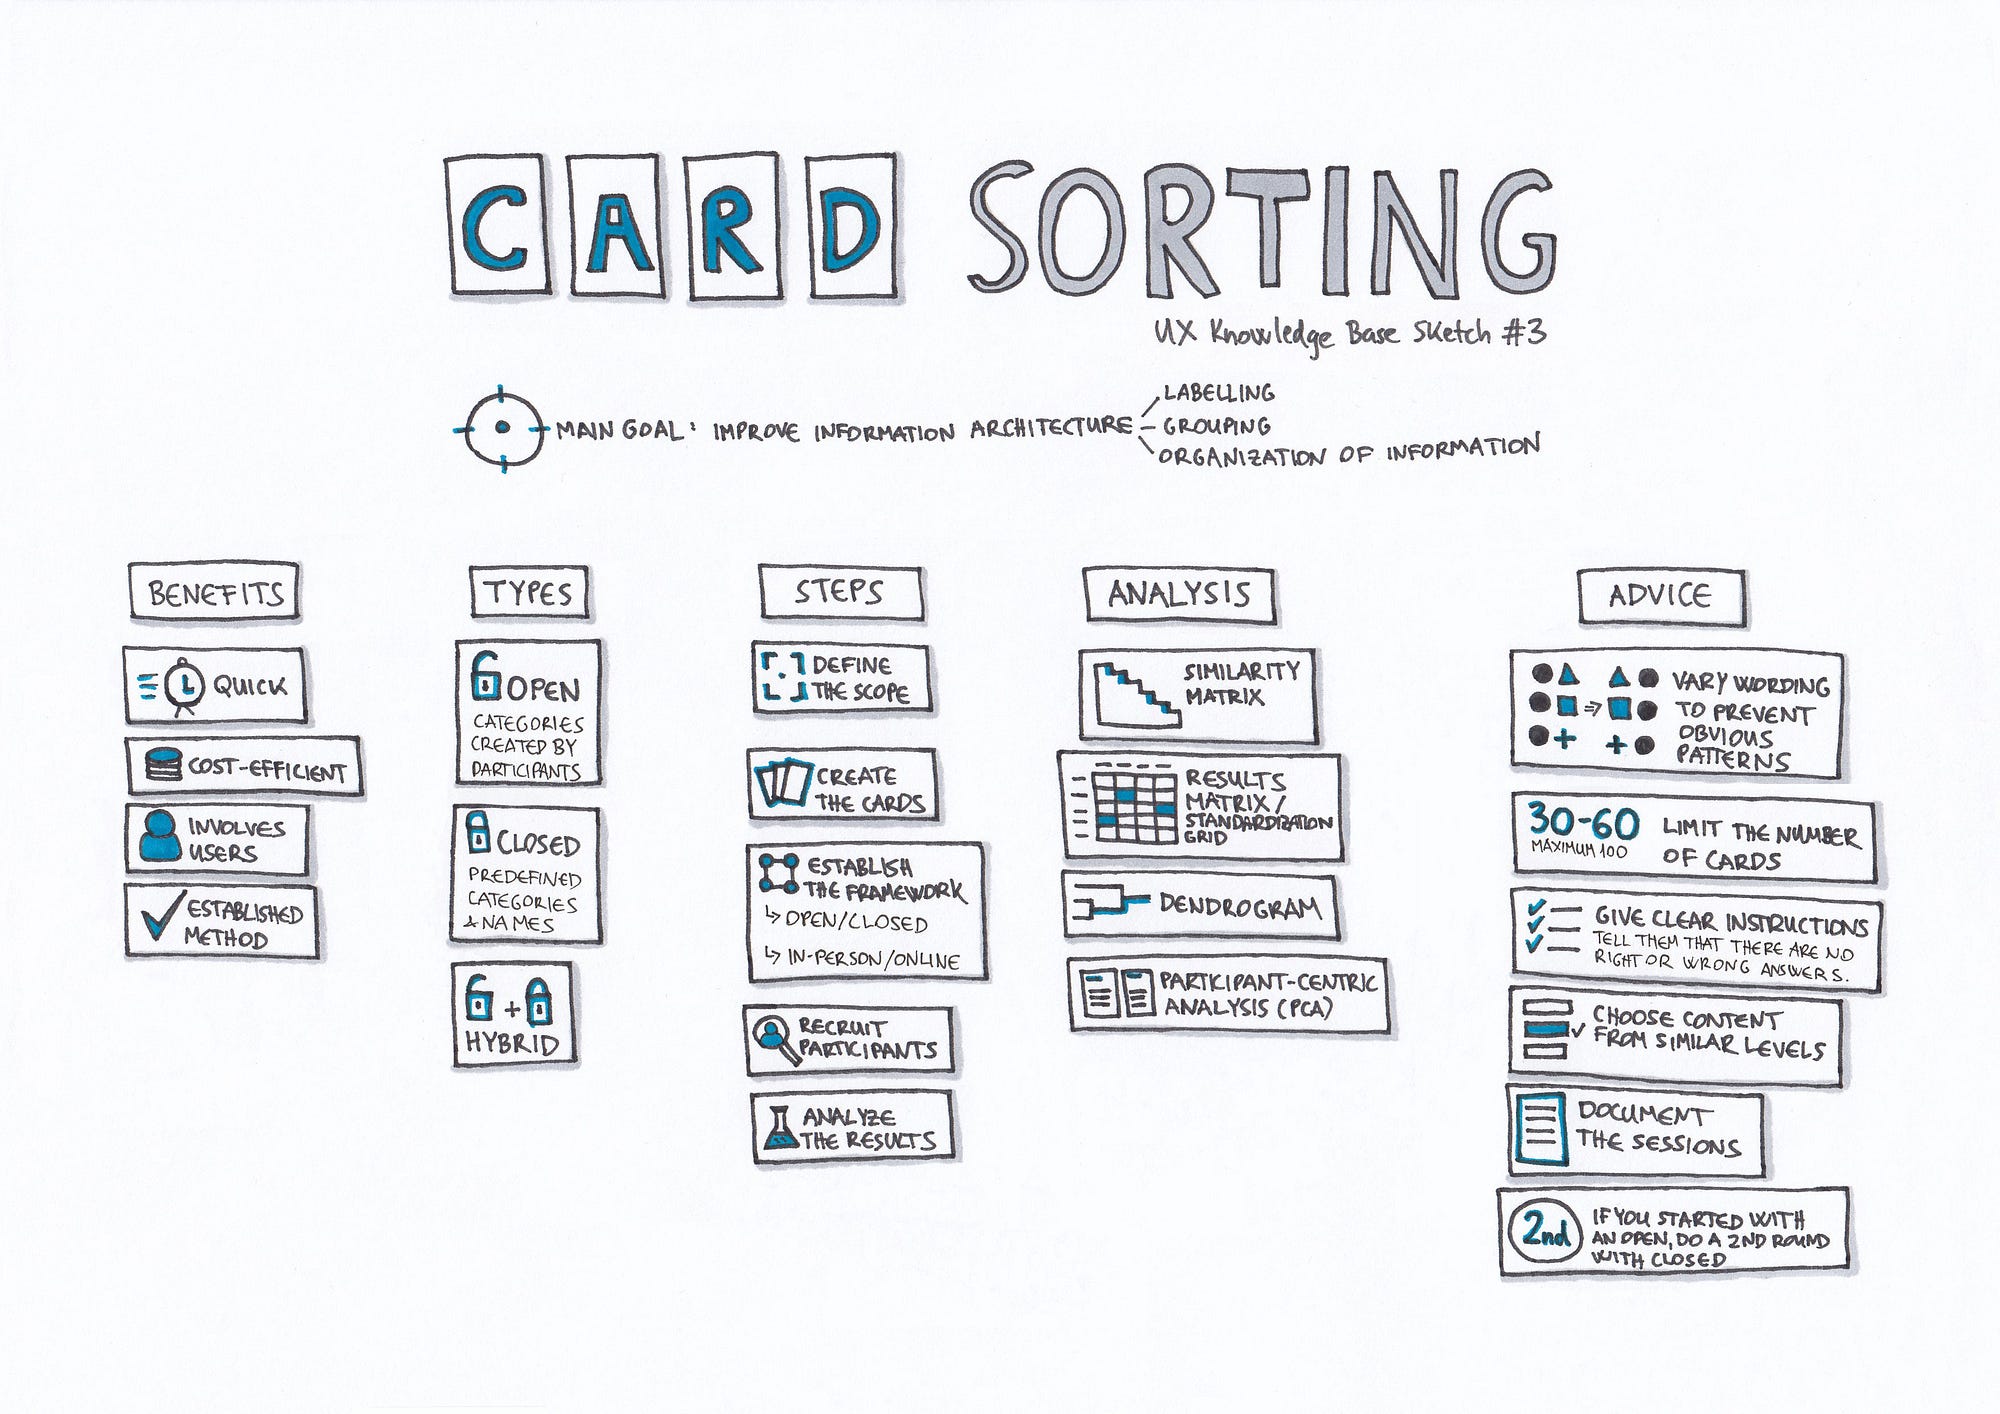 CARD SORTING
UX Knowledge Base Sketch #3
MAIN GOAL: IMPROVE INFORMATION ARCHITECTURE
LABELLING
GROUPING
ORGANIZATION OF INFORMATION
BENEFITS
QUICK
COST-EFFICIENT
INVOLVES
USERS
ESTABLISHED
METHOD
TYPES
OPEN
CATEGORIES
CREATED BY
PARTICIPANTS
CLOSED
PREDEFINED
CATEGORIES
& NAMES
+
HYBRID
STEPS
DEFINE
THE SCOPE
CREATE
THE CARDS
ESTABLISH
THE FRAMEWORK
↳ OPEN/CLOSED
↳ IN-PERSON/ONLINE
RECRUIT
PARTICIPANTS
ANALYZE
THE RESULTS
ANALYSIS
SIMILARITY
MATRIX
RESULTS
MATRIX/
STANDARDIZATION
GRID
DENDROGRAM
PARTICIPANT-CENTRIC
ANALYSIS (PCA)
ADVICE
VARY WORDING
TO PREVENT
OBVIOUS
PATTERNS
30-60
MAXIMUM 100
LIMIT THE NUMBER
OF CARDS
GIVE CLEAR INSTRUCTIONS
TELL THEM THAT THERE ARE NO
RIGHT OR WRONG ANSWERS.
CHOOSE CONTENT
FROM SIMILAR LEVELS
DOCUMENT
THE SESSIONS
2nd
IF YOU STARTED WITH
AN OPEN, DO A 2ND ROUND
WITH CLOSED